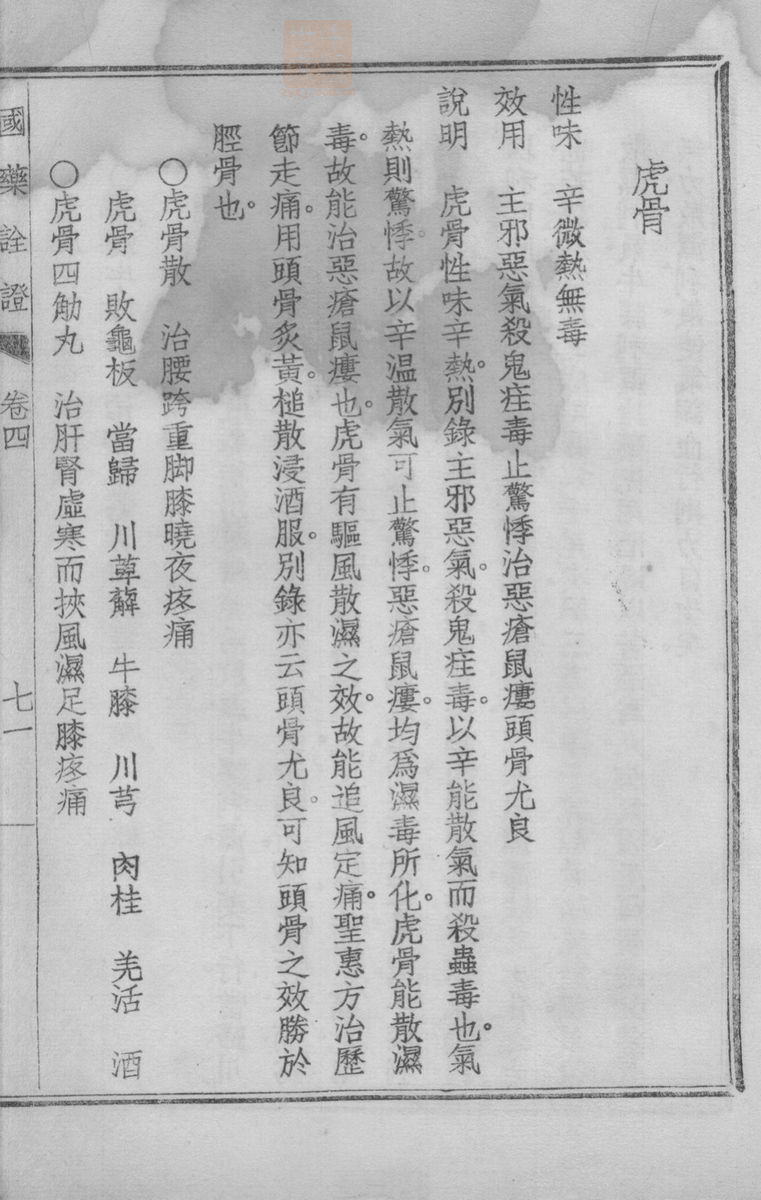 虎骨
性味　辛微熱無毒
效用　主邪惡氣殺鬼疰毒止驚悸治惡瘡鼠瘻頭骨尤良
說明　虎骨性味辛熱。別錄主邪惡氣。殺鬼疰毒。以辛能散氣而殺蟲毒也。氣
熱則驚悸。故以辛溫散氣可止驚悸。惡瘡鼠瘻。均爲濕毒所化。虎骨能散濕
毒。故能治惡瘡鼠瘻也。虎骨有驅風散濕之效。故能追風定痛。聖惠方治歷
節走痛。用頭骨炙黃。槌散浸酒服。別錄亦云頭骨尤良。可知頭骨之效勝於
脛骨也。
〇虎骨散　治腰跨重脚膝曉夜疼痛
虎骨　敗龜板　當歸　川萆薢　牛膝　川芎　肉桂　羌活　酒
〇虎骨四觔丸　治肝腎虛寒而挾風濕足膝疼痛
國藥詮證　卷四　七一